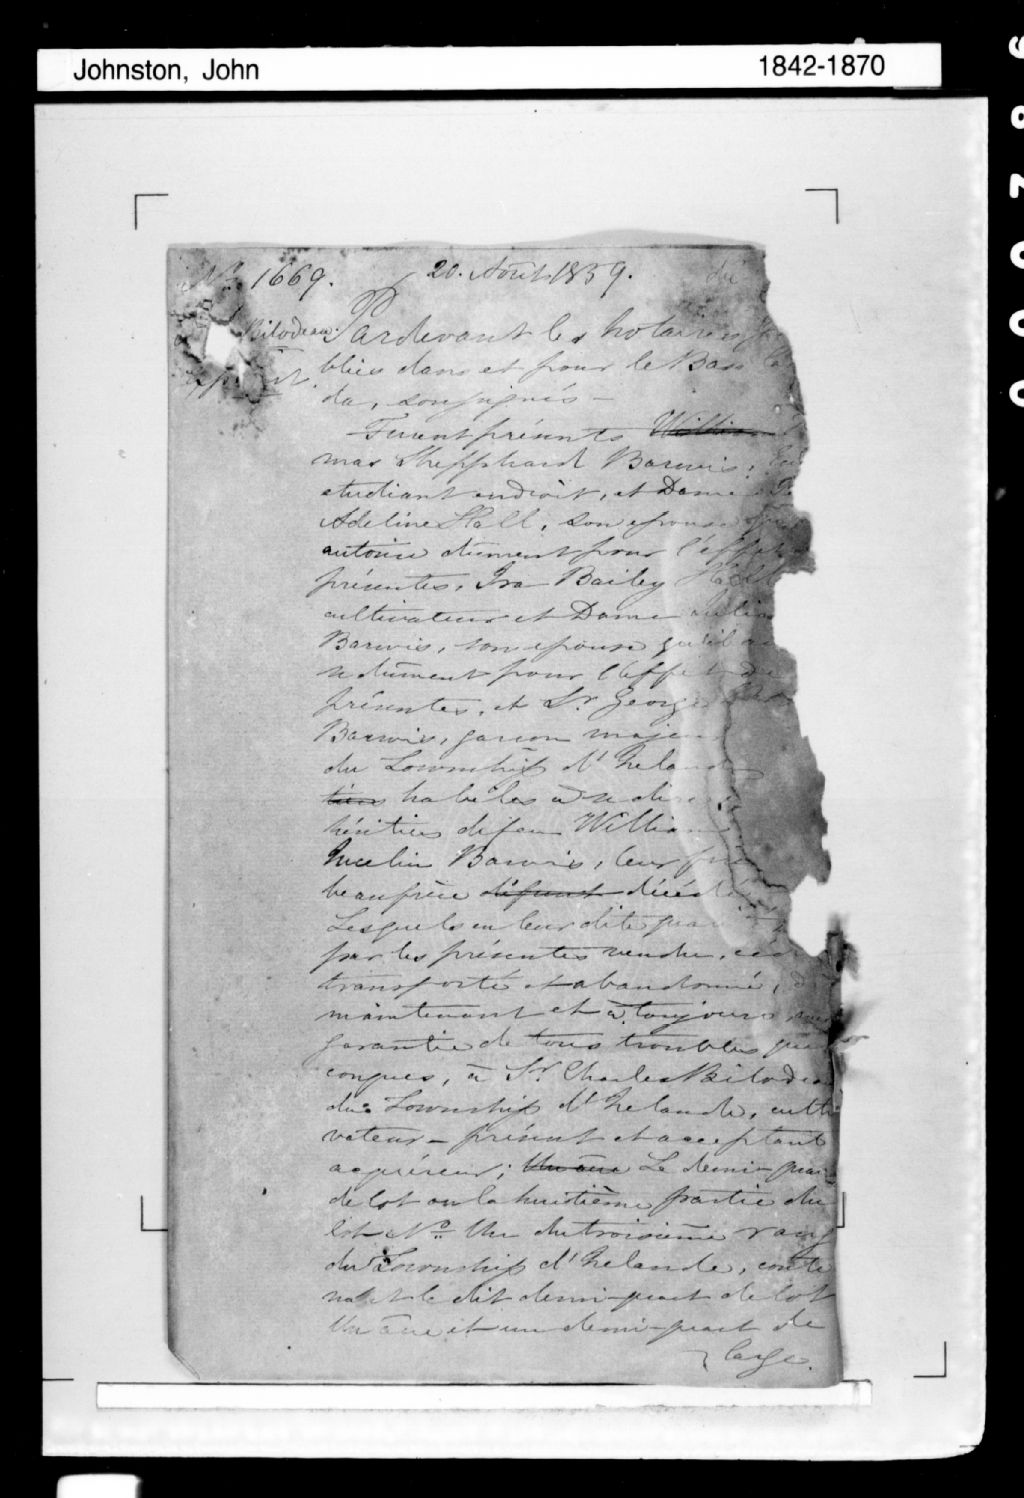 Johnston, John 1842-1870
No. 1669. 20. Août 1859. du
Bilodeau. Pardevant les notaires
blics dans et pour le Bas
da, soussignés –
Furent présents Willia
mas Shepphard Barwis,
etudiant endroit, et Dame
Adeline Hall, son epouse
autorise dûment pour l'effet
présentes, Ira Bailey Hall
cultivateur et Dame
Barwis, son epouse qu'il
se dûment pour l'effet de
présentes, et Sr. George
Barwis, garcon majeur
du Township d'Irelande
tiers habiles à se dire
héritiers de feu William
Barwis, leur frè
beaufrère défunt décédé
Lesquels en leur dite qua
par les présentes vendu, cédé
transporté et abandonné, d
maintenant et à toujours
garantie de tous troubles quel
conques, à Sr. Charles Bilodeau
du Township d'Irelande, culti
vateur – présent et acceptant
acquéreur; Un âcre Le demi-quart
de lot ou la huitième partie du
lot No. Un du troisième rang
du Township d'Irelande, conte
nant le dit demi-quart de lot
Un âcre et un demi-quart de
large.